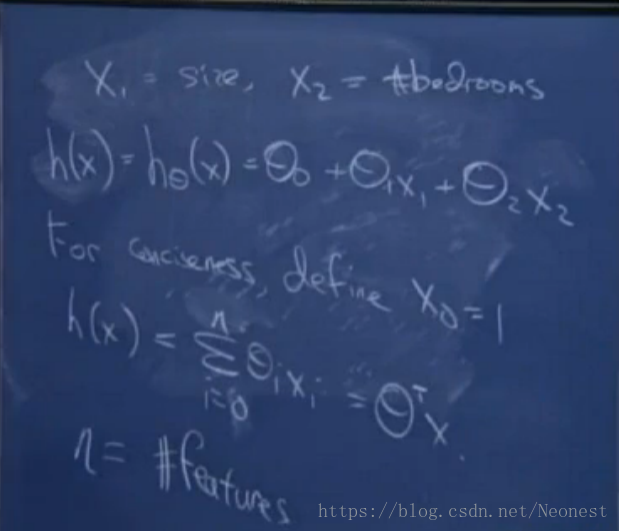 X₁ = size, X₂ = #bedrooms
h(x) = hθ(x) = θ₀ + θ₁x₁ + θ₂x₂
For conciseness, define X₀ = 1
h(x) = Σⁿᵢ₌₀ θᵢxᵢ = θᵀx.
n = #features
https://blog.csdn.net/Neonest